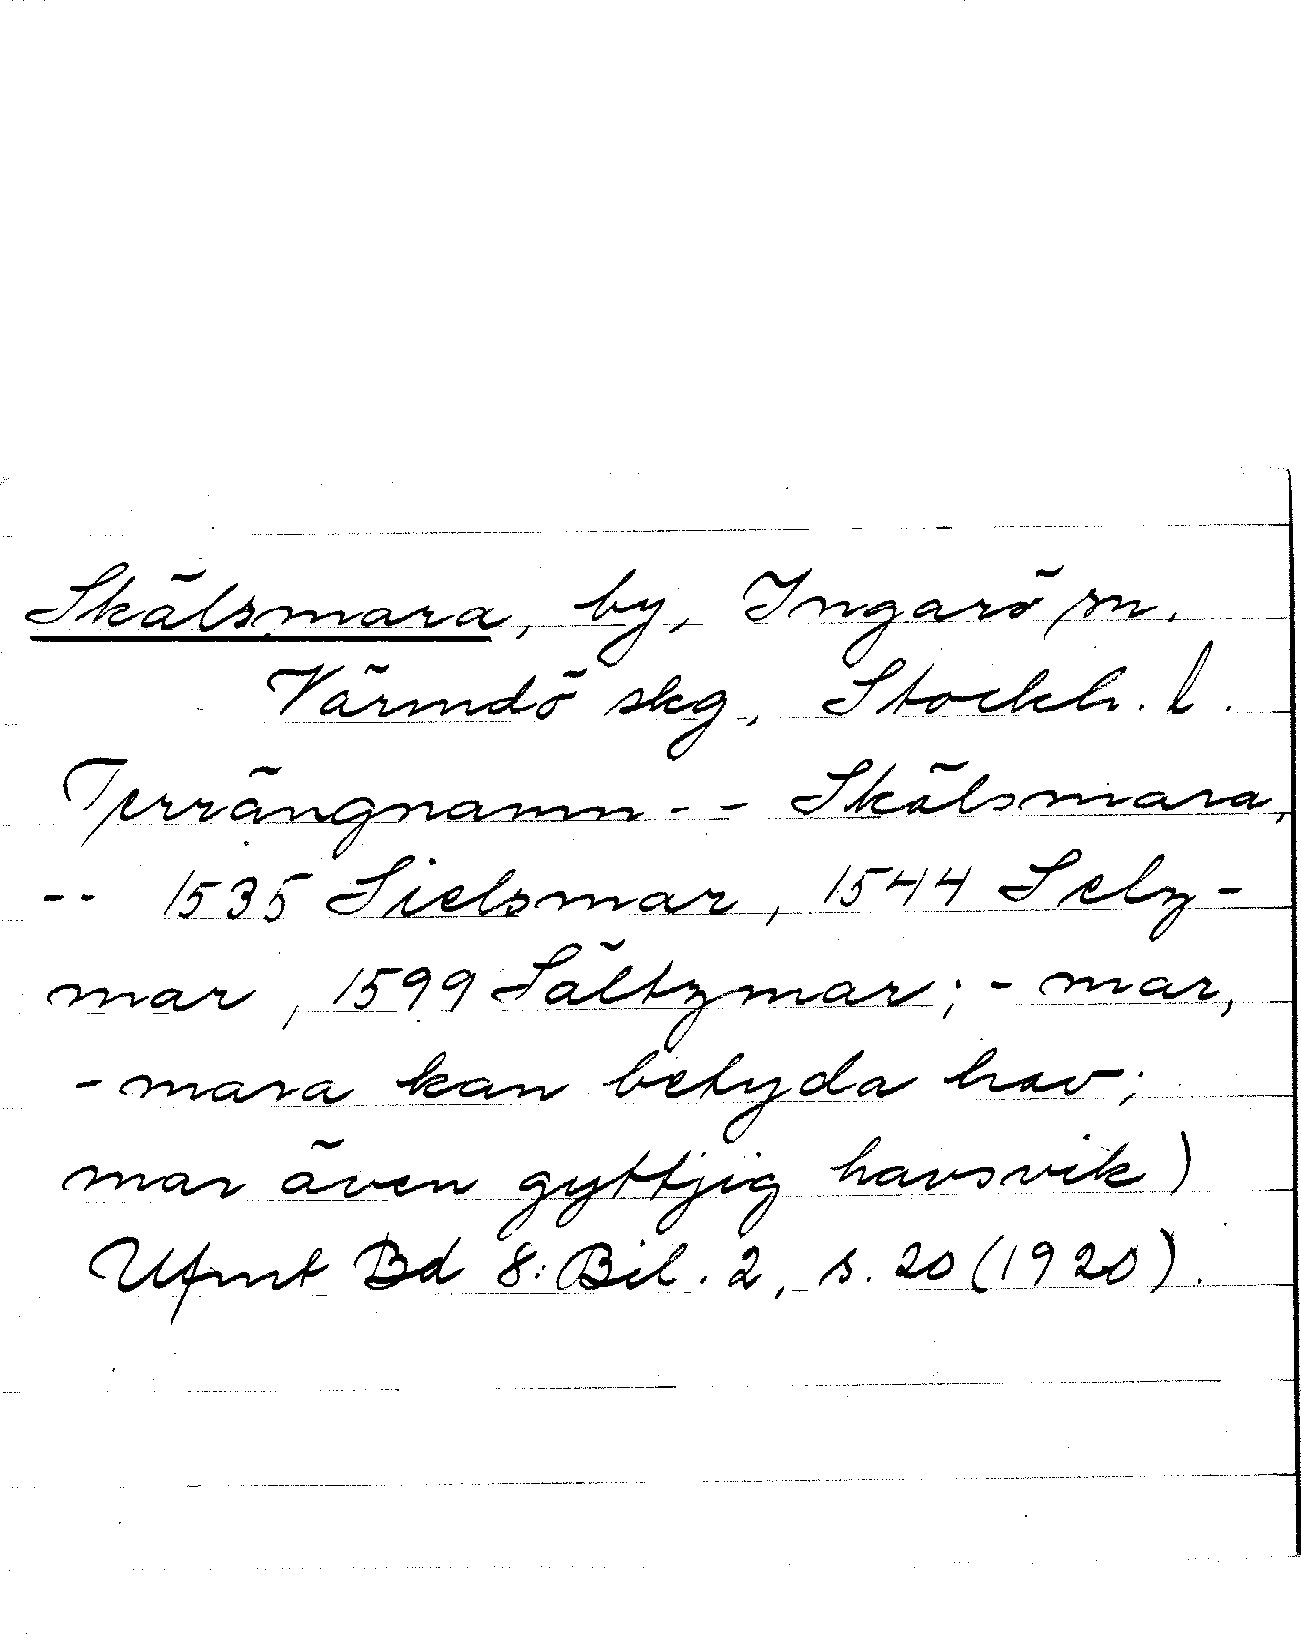 Skälsmara, by, Ingarö sn.
Värmdö skg, Stockh. l.
Terrängnamn -- Skälsmara,
-- 1535 Sielsmar, 1544 Selz-
mar, 1599 Sältzmar; - mar,
- mara kan betyda hav;
mar även gyttjig havsvik)
Ufmt Bd 8: Bil. 2, s. 20 (1920).